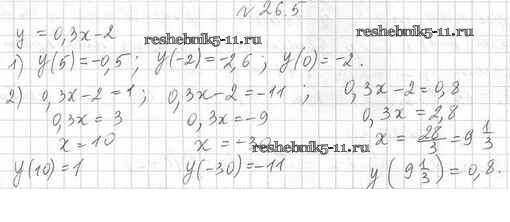 № 26.5
y = 0,3x-2
reshebnik5-11.ru
1) y(5)=-0,5; y(-2)=-2,6; y(0)=-2.
2) 0,3x-2=1; 0,3x-2=-11; 0,3x-2=0,8
0,3x=3 0,3x=-9 0,3x=2,8
x=10 x=-30 x=28/3=9 1/3
reshebnik5-11.ru
y(10)=1 y(-30)=-11 y(9 1/3)=0,8.